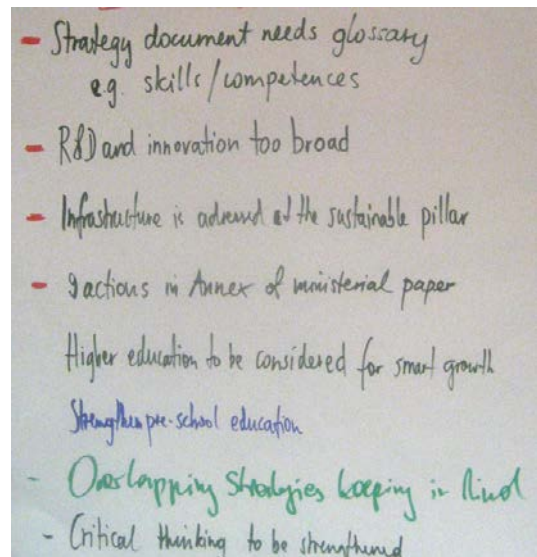 - Strategy document needs glossary
e.g. skills/competences
- R&D and innovation too broad
- Infrastructure is adressed at the sustainable pillar
- 9 actions in Annex of ministerial paper
Higher education to be considered for smart growth
Strengthen pre-school education
- Overlapping Strategies keeping in Mind
- Critical thinking to be strengthened